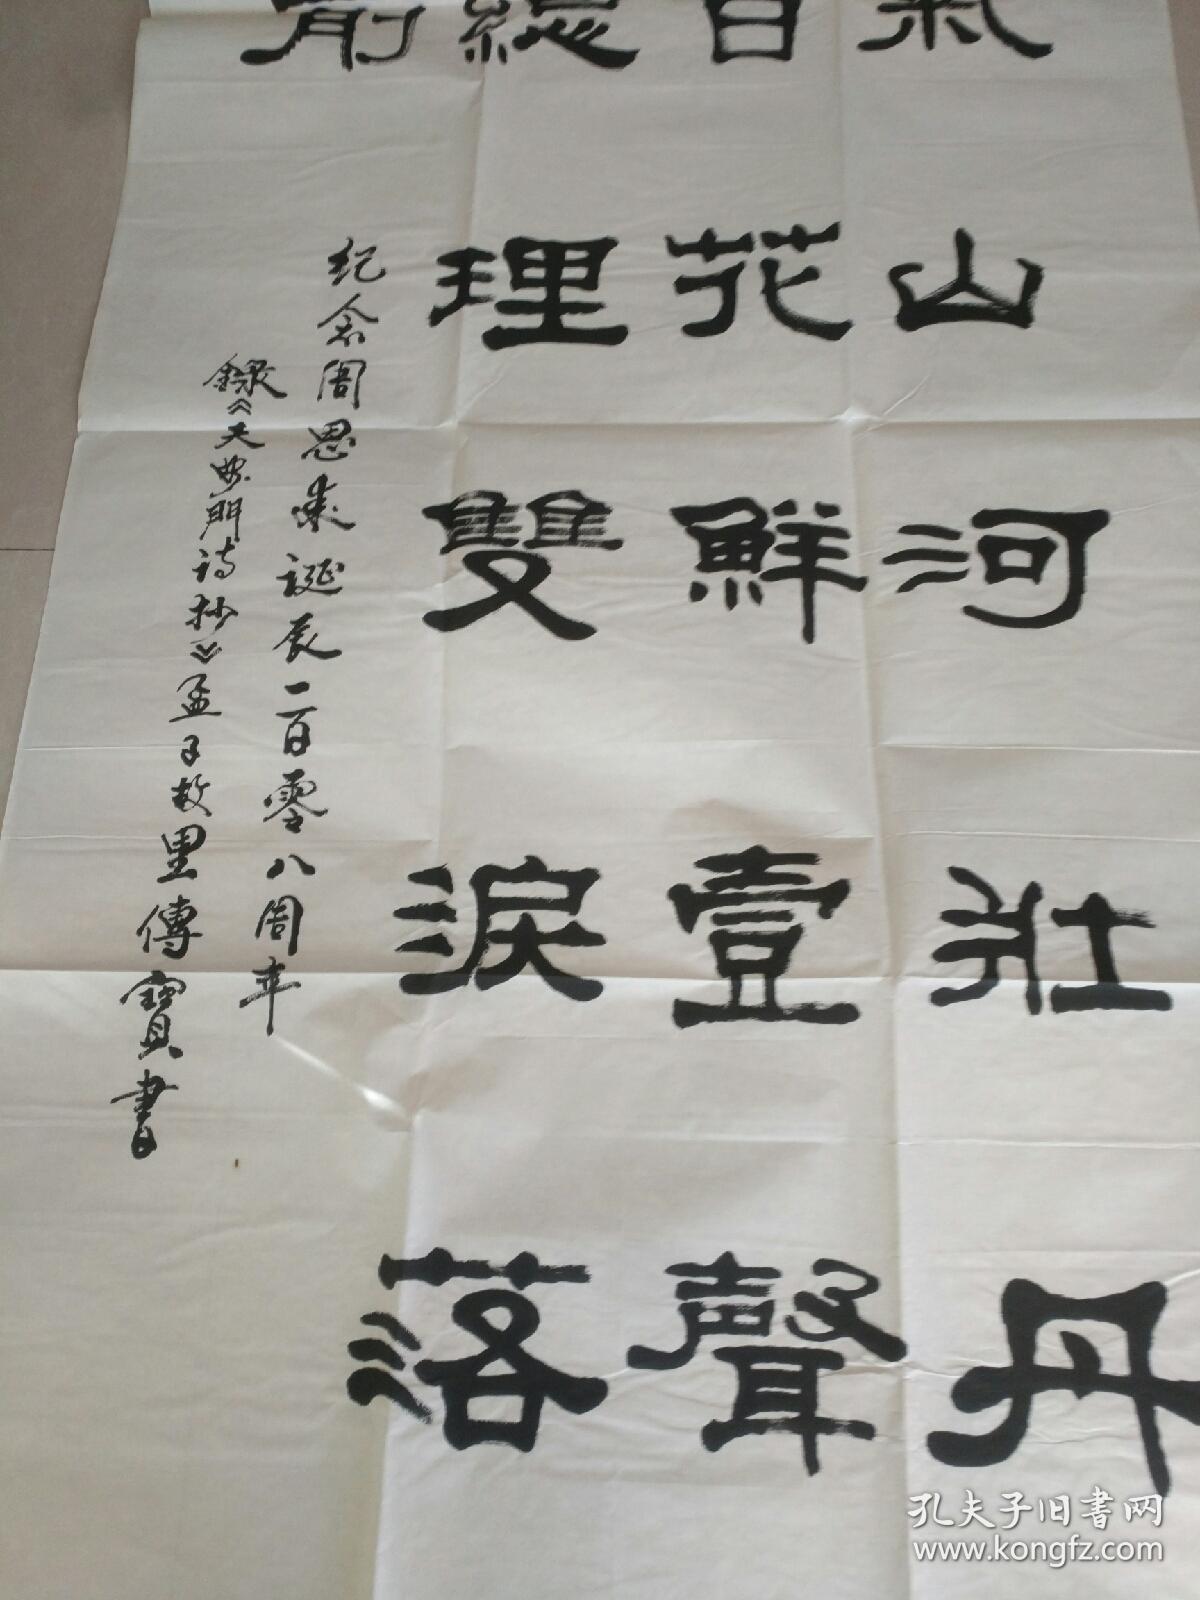 氣山河壯丹
百花鮮壹聲
總理雙淚落
前
纪念周恩來誕辰一百零八周年
錄《天安門诗抄》孟子故里傳寶書
孔夫子旧書网
www.kongfz.com